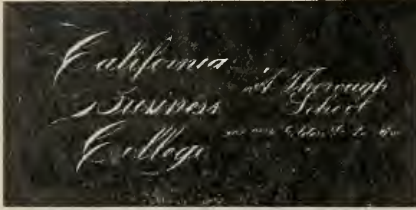 California
Business
College
A Thorough
School